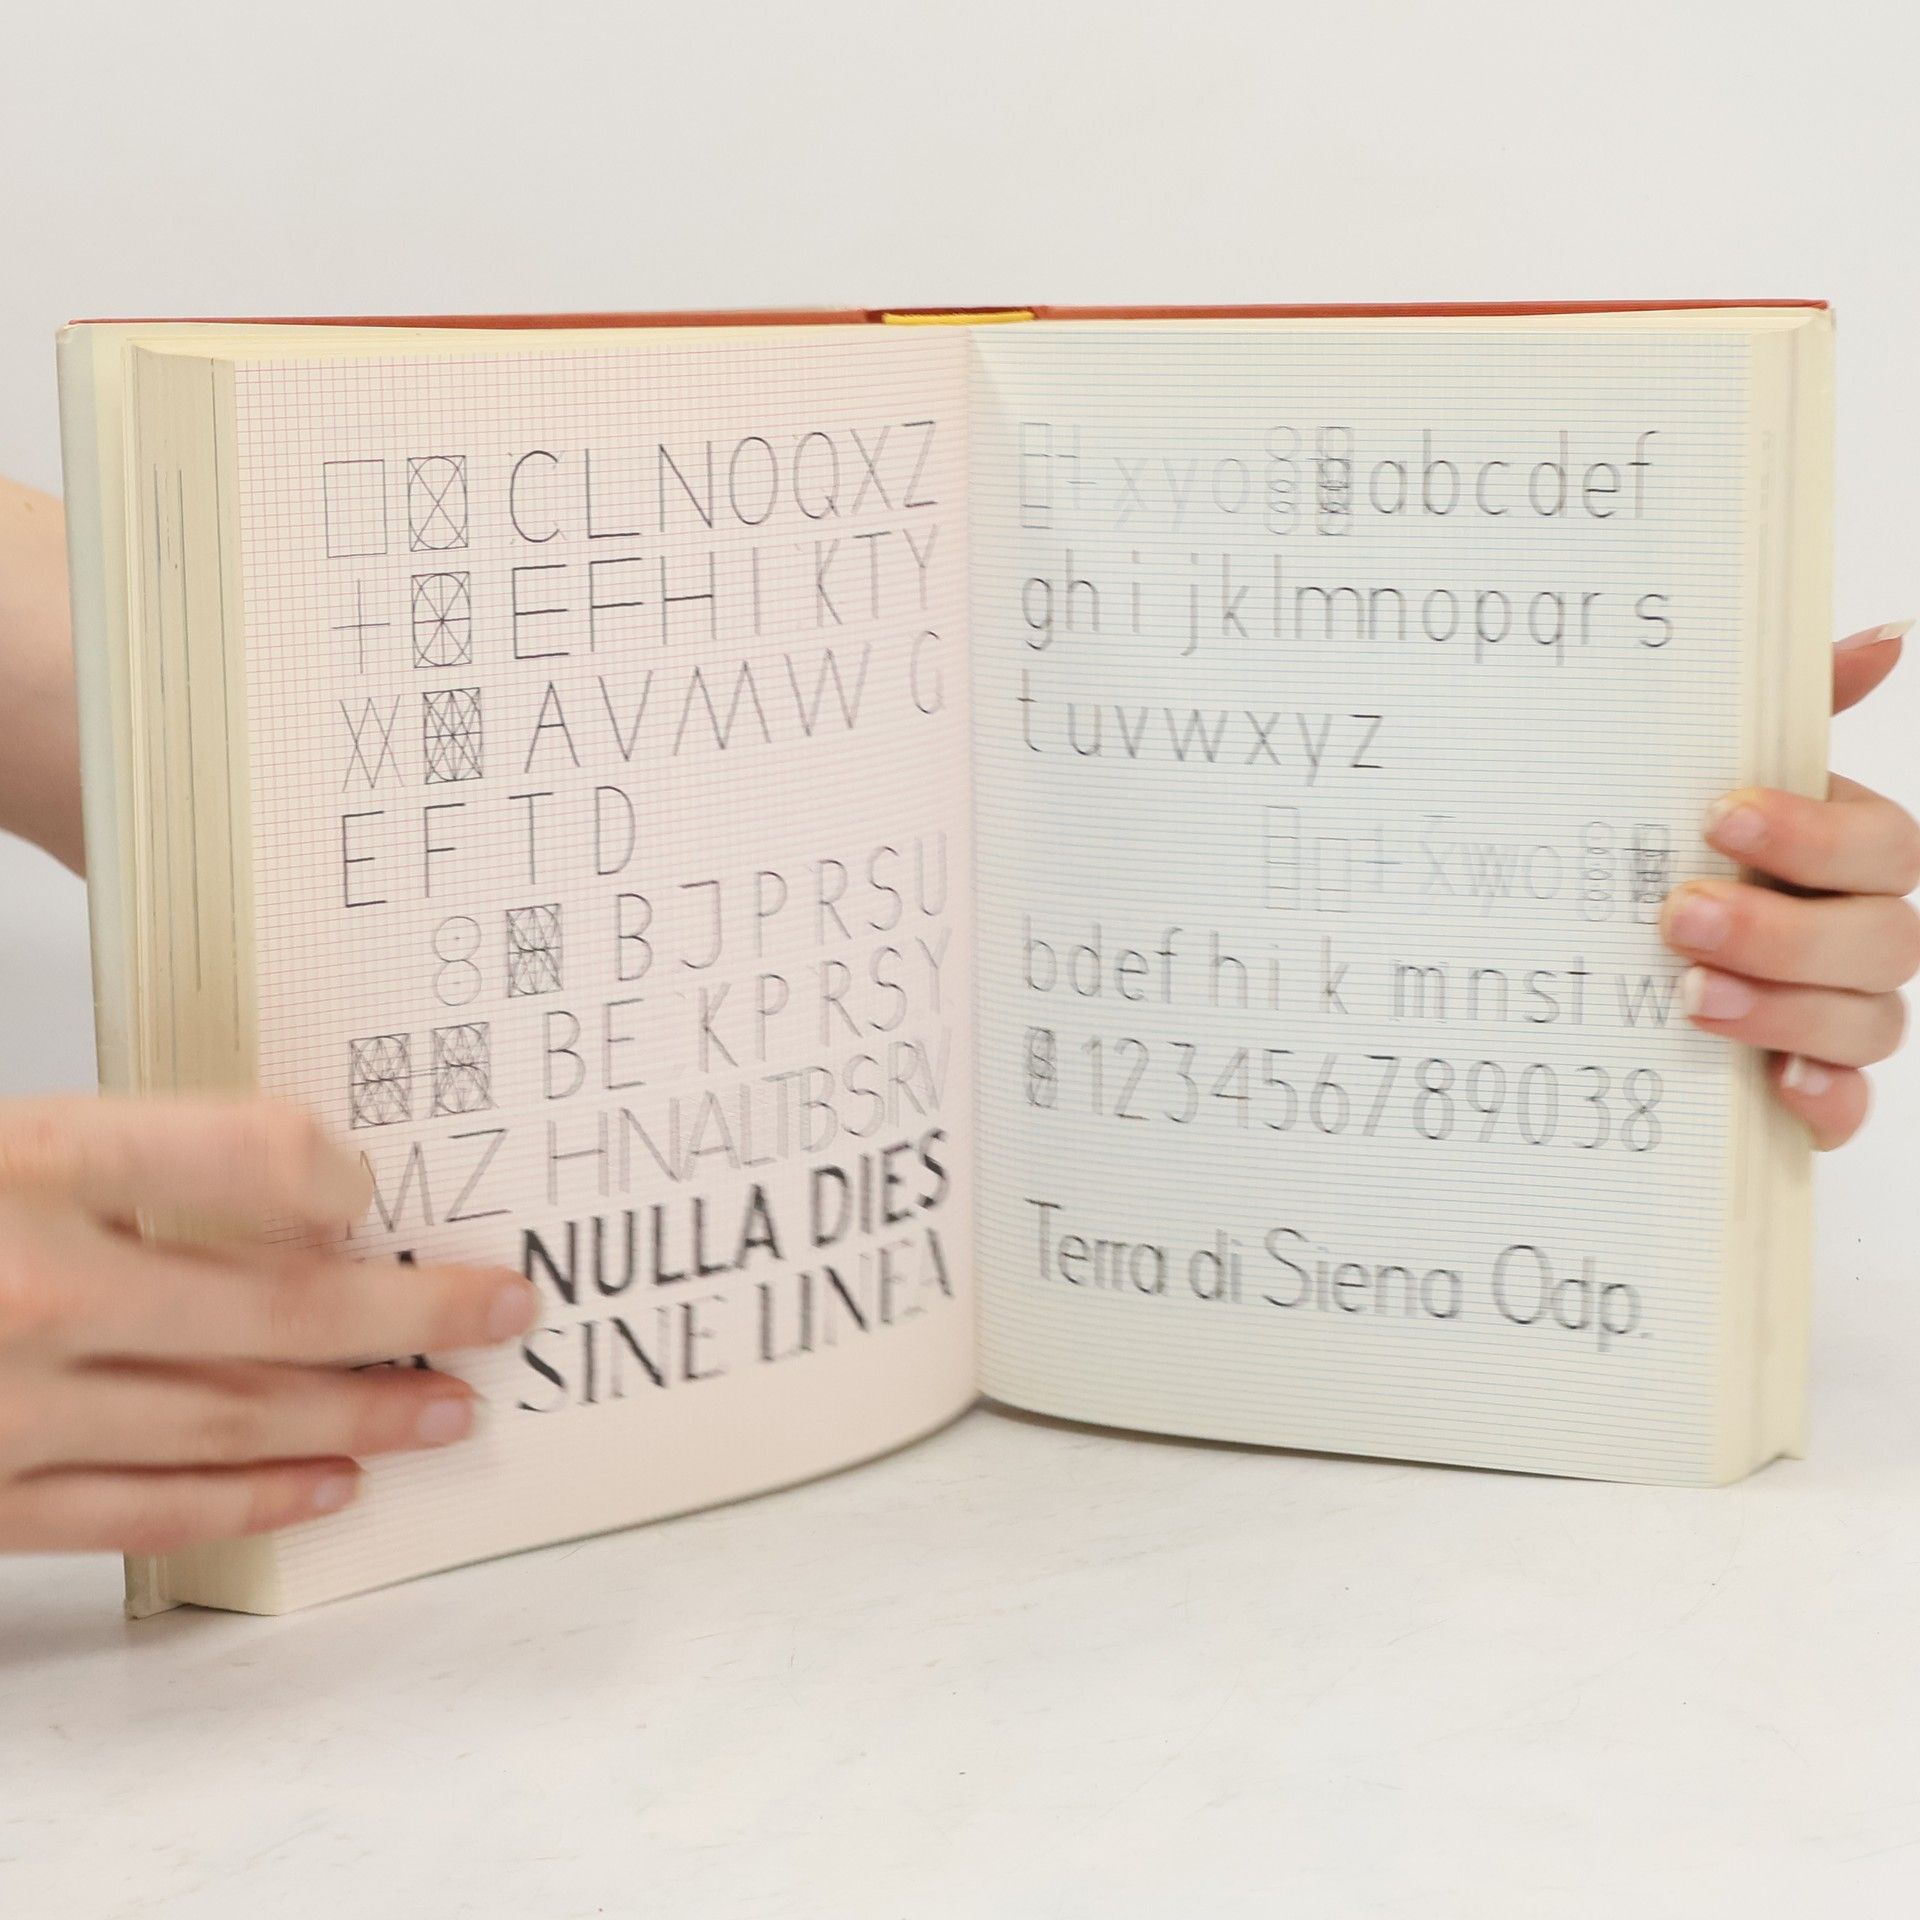 CLNOQXZ
+ EFHI KTY
AVMW G
EFTD
8 BJPRSU
BE KPRSY
MZ HNALTBSRV
NULLA DIES
SINE LINEA
+xyo abcdef
ghijklmnopqr s
tuvwxyz
bdef hi k mnst w
123456789038
Terra di Siena Odp.